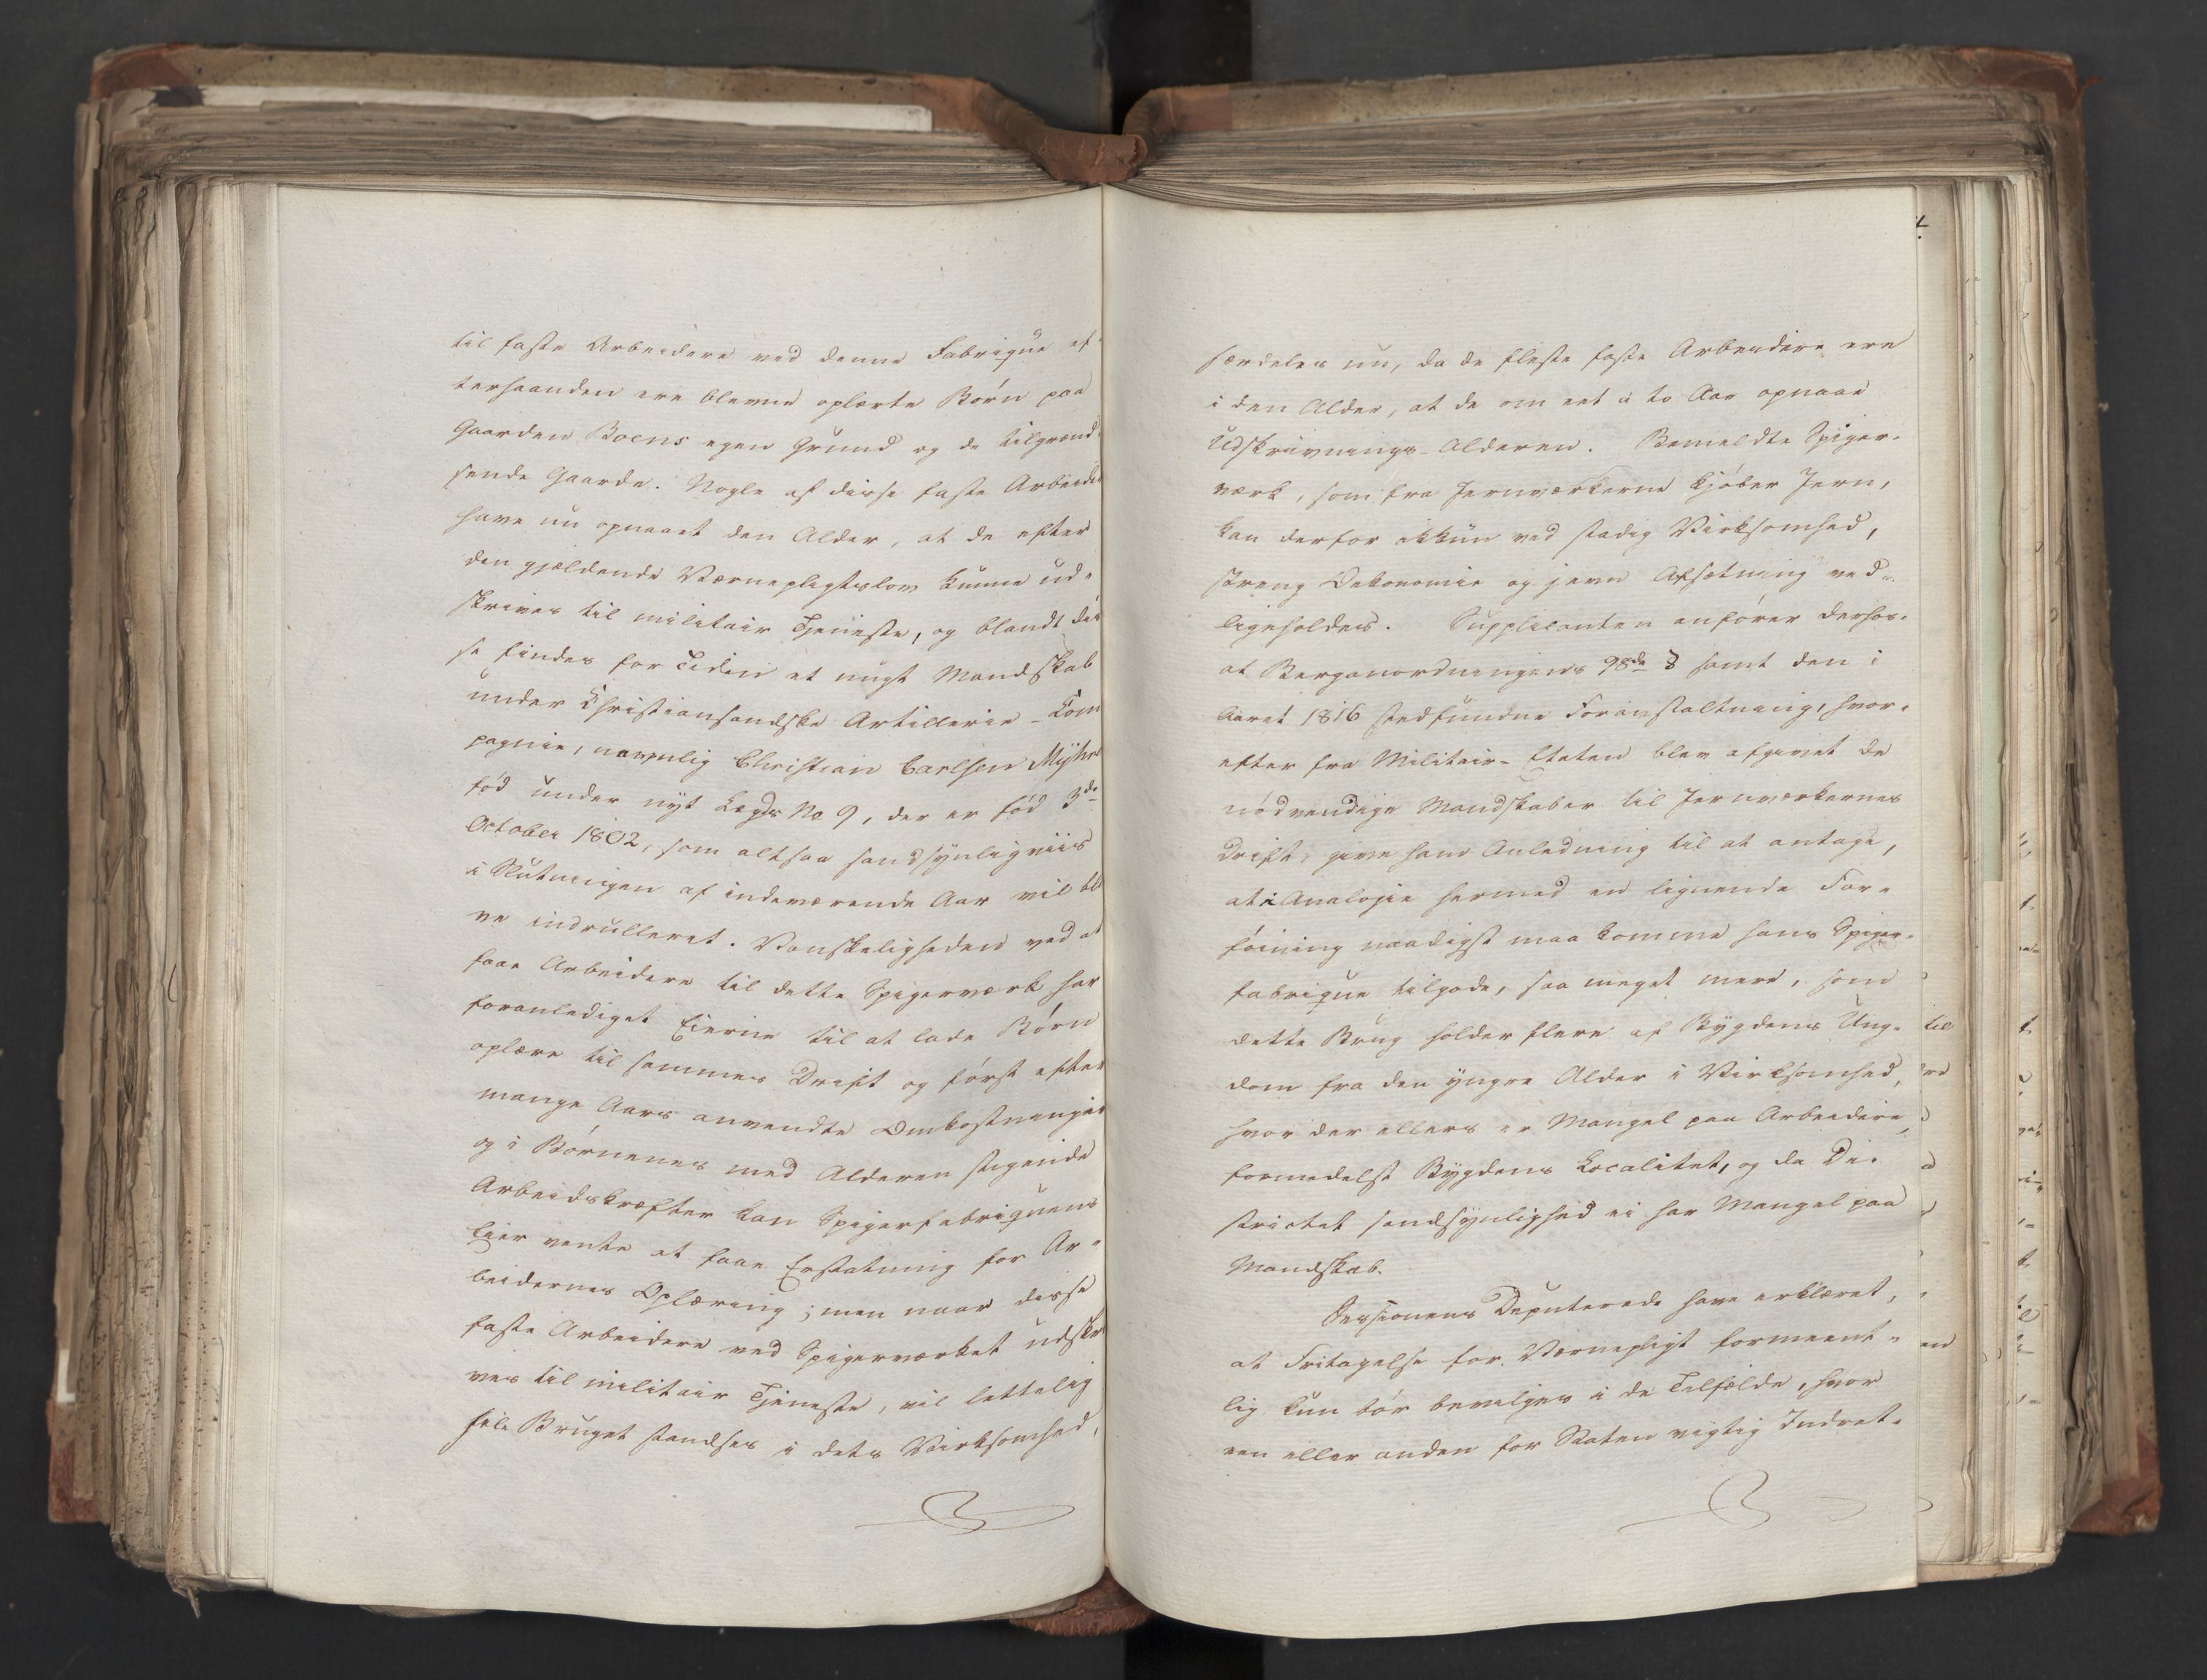 til faste Arbeidere ved denne Fabrique ef-
terhaanden ere blevne oplærte Börn paa
Gaarden Boens egen Grund og de tilgrænd-
sende Gaarde. Nogle af disse faste Arbeide
have nu opnaaet den Alder, at de efter
den gjældende Værnepligtslov kunne ud-
skrives til militair Tjeneste, og blandt dis
se findes for Tiden et ungt Mandskab
under Christiansandske Artillerie-Com
pagnie, navnlig Christian Carlsen Myhre
fód under nyt Lægds No 9, der er fód 3de
October 1802, som altsaa sandsynligviis
i Slutningen af indeværende Aar vil bli
ve indrulleret. Vanskeligheden ved at
faae Arbeidere til dette Spigerværk har
foranlediget Eierne til at lade Börn
oplære til sammes Drift og först efter
mange Aars anvendte Omkostninger
og i Börnenes med Alderen stigende
Arbeidskræfter kan Spigerfabriquens
Eier vente at faae Erstatning for Ar-
beidernes Oplæring; men naar disse
faste Arbeidere ved Spigerværket udskri
ves til militair Tjeneste, vil lettelig
hele Bruget standses i dets Virksomhed,
særdeles nu, da de fleste faste Arbeidere ere
i den Alder, at de om eet à to Aar opnaae
Udskrivnings-Alderen. Bemeldte Spiger-
værk, som fra Jernværkerne kjöber Jern,
kan derfor ikkun ved stadig Virksomhed,
streng Oekonomie og jevn Afsætning ved-
ligeholdes. Supplicanten anförer derhos,
at Berganordningens 98de § samt den i
Aaret 1816 stedfundne Foranstaltning, hvor-
efter fra Militair-Etaten blev afgivet de
nödvendige Mandskaber til Jernværkernes
Drift, give ham Anledning til at antage,
at i Analogie hermed en lignende For-
föining naadigst maa komme hans Spiger-
fabrique tilgode, saa meget mere, som
dette Brug holder flere af Bygdens Ung-
dom fra den yngre Alder i Virksomhed,
hvor der ellers er Mangel paa Arbeidere,
formedelst Bygdens Localitet, og da Di-
strictet sandsynlighed ei har Mangel paa
Mandskab.
Sessionens Deputerede have erklæret,
at Fritagelse for Værnepligt formeent-
lig kun bör bevilges i de Tilfælde, hvor
een eller anden for Staten vigtig Indret-